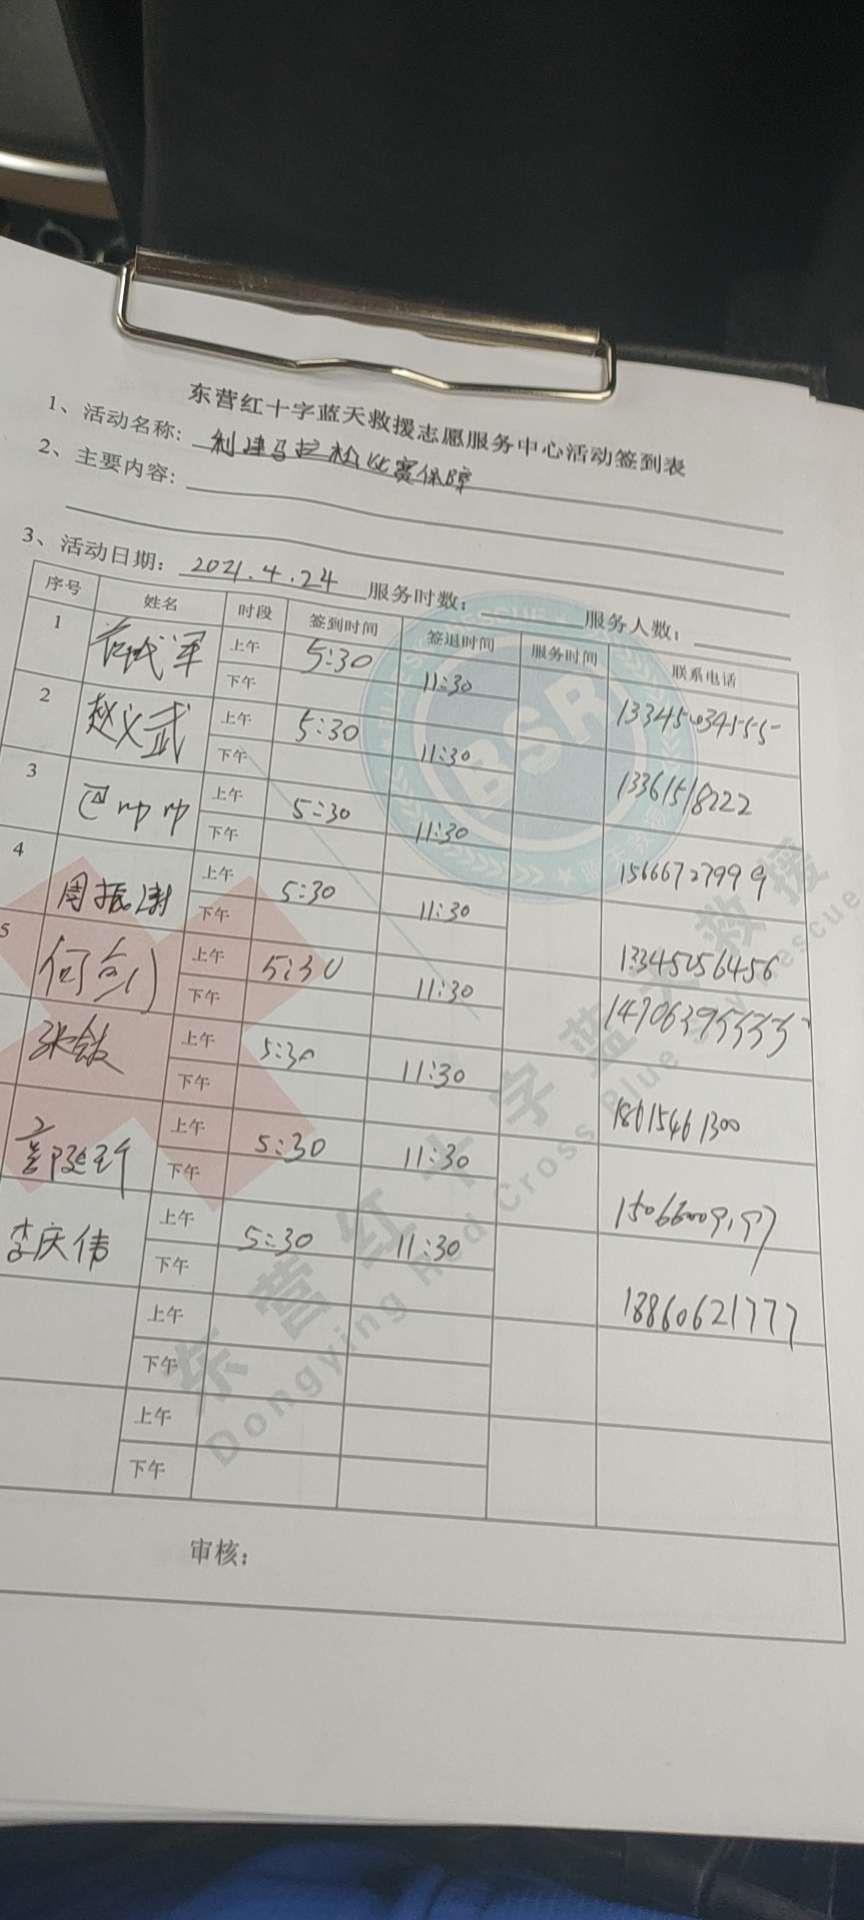 东营红十字蓝天救援志愿服务中心活动签到表
1、活动名称: 利津马拉松比赛保障
2、主要内容:
3、活动日期: 2021.4.24 服务时数: 服务人数:
序号 姓名 时段 签到时间 签退时间 服务时间 联系电话
1 军 上午 5:30
下午 11:30 13345034555
2 赵义武 上午 5:30
下午 11:30 13361518222
3 上午 5:30
下午 11:30 15666727999
4 周振 上午 5:30
下午 11:30 13345056456
5 何剑 上午 5:30
下午 11:30
张 上午 5:30
下午 11:30 18615461300
上午 5:30
下午 11:30
李庆伟 上午 5:30 11:30
下午 18860621777
上午
下午
上午
下午
审核:
BSR
东营红十字蓝天救援
Dongying Red Cross Blue Sky Rescue